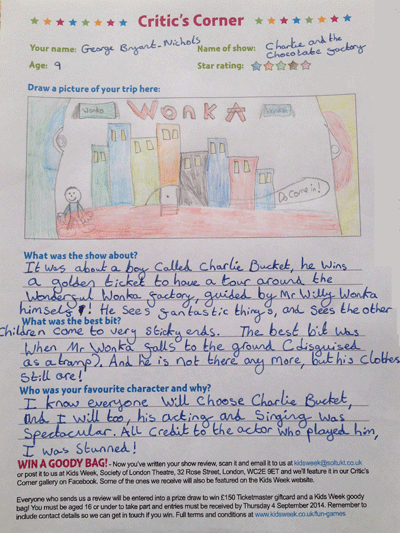 Critic's Corner
Your name: George Bryant-Nichols Name of show: Charlie and the
Chocolate factory
Age: 9 Star rating:
Draw a picture of your trip here:
Wonka WONKA Wonka
Do come in!
What was the show about?
It was about a boy called Charlie Bucket, he wins
a golden ticket to have a tour around the
Wonderful Wonka factory, guided by Mr Willy Wonka
himself! He sees fantastic things, and sees the other
What was the best bit?
children come to very sticky ends. The best bit was
when Mr Wonka falls to the ground (disguised
as a tramp). And he is not there any more, but his clothes
still are!
Who was your favourite character and why?
I know everyone will choose Charlie Bucket,
and I will too, his acting and singing was
spectacular. All credit to the actor who played him,
I was stunned!
WIN A GOODY BAG! - Now you've written your show review, scan it and email it to us at kidsweek@soltukt.co.uk
or post it to us at Kids Week, Society of London Theatre, 32 Rose Street, London, WC2E 9ET and we'll feature it in our Critic's
Corner gallery on Facebook. Some of the ones we receive will also be featured on the Kids Week website.
Everyone who sends us a review will be entered into a prize draw to win £150 Ticketmaster giftcard and a Kids Week goody
bag! You must be aged 16 or under to take part and entries must be received by Thursday 4 September 2014. Remember to
include contact details so we can get in touch if you win. Full terms and conditions at www.kidsweek.co.uk/fun-games.